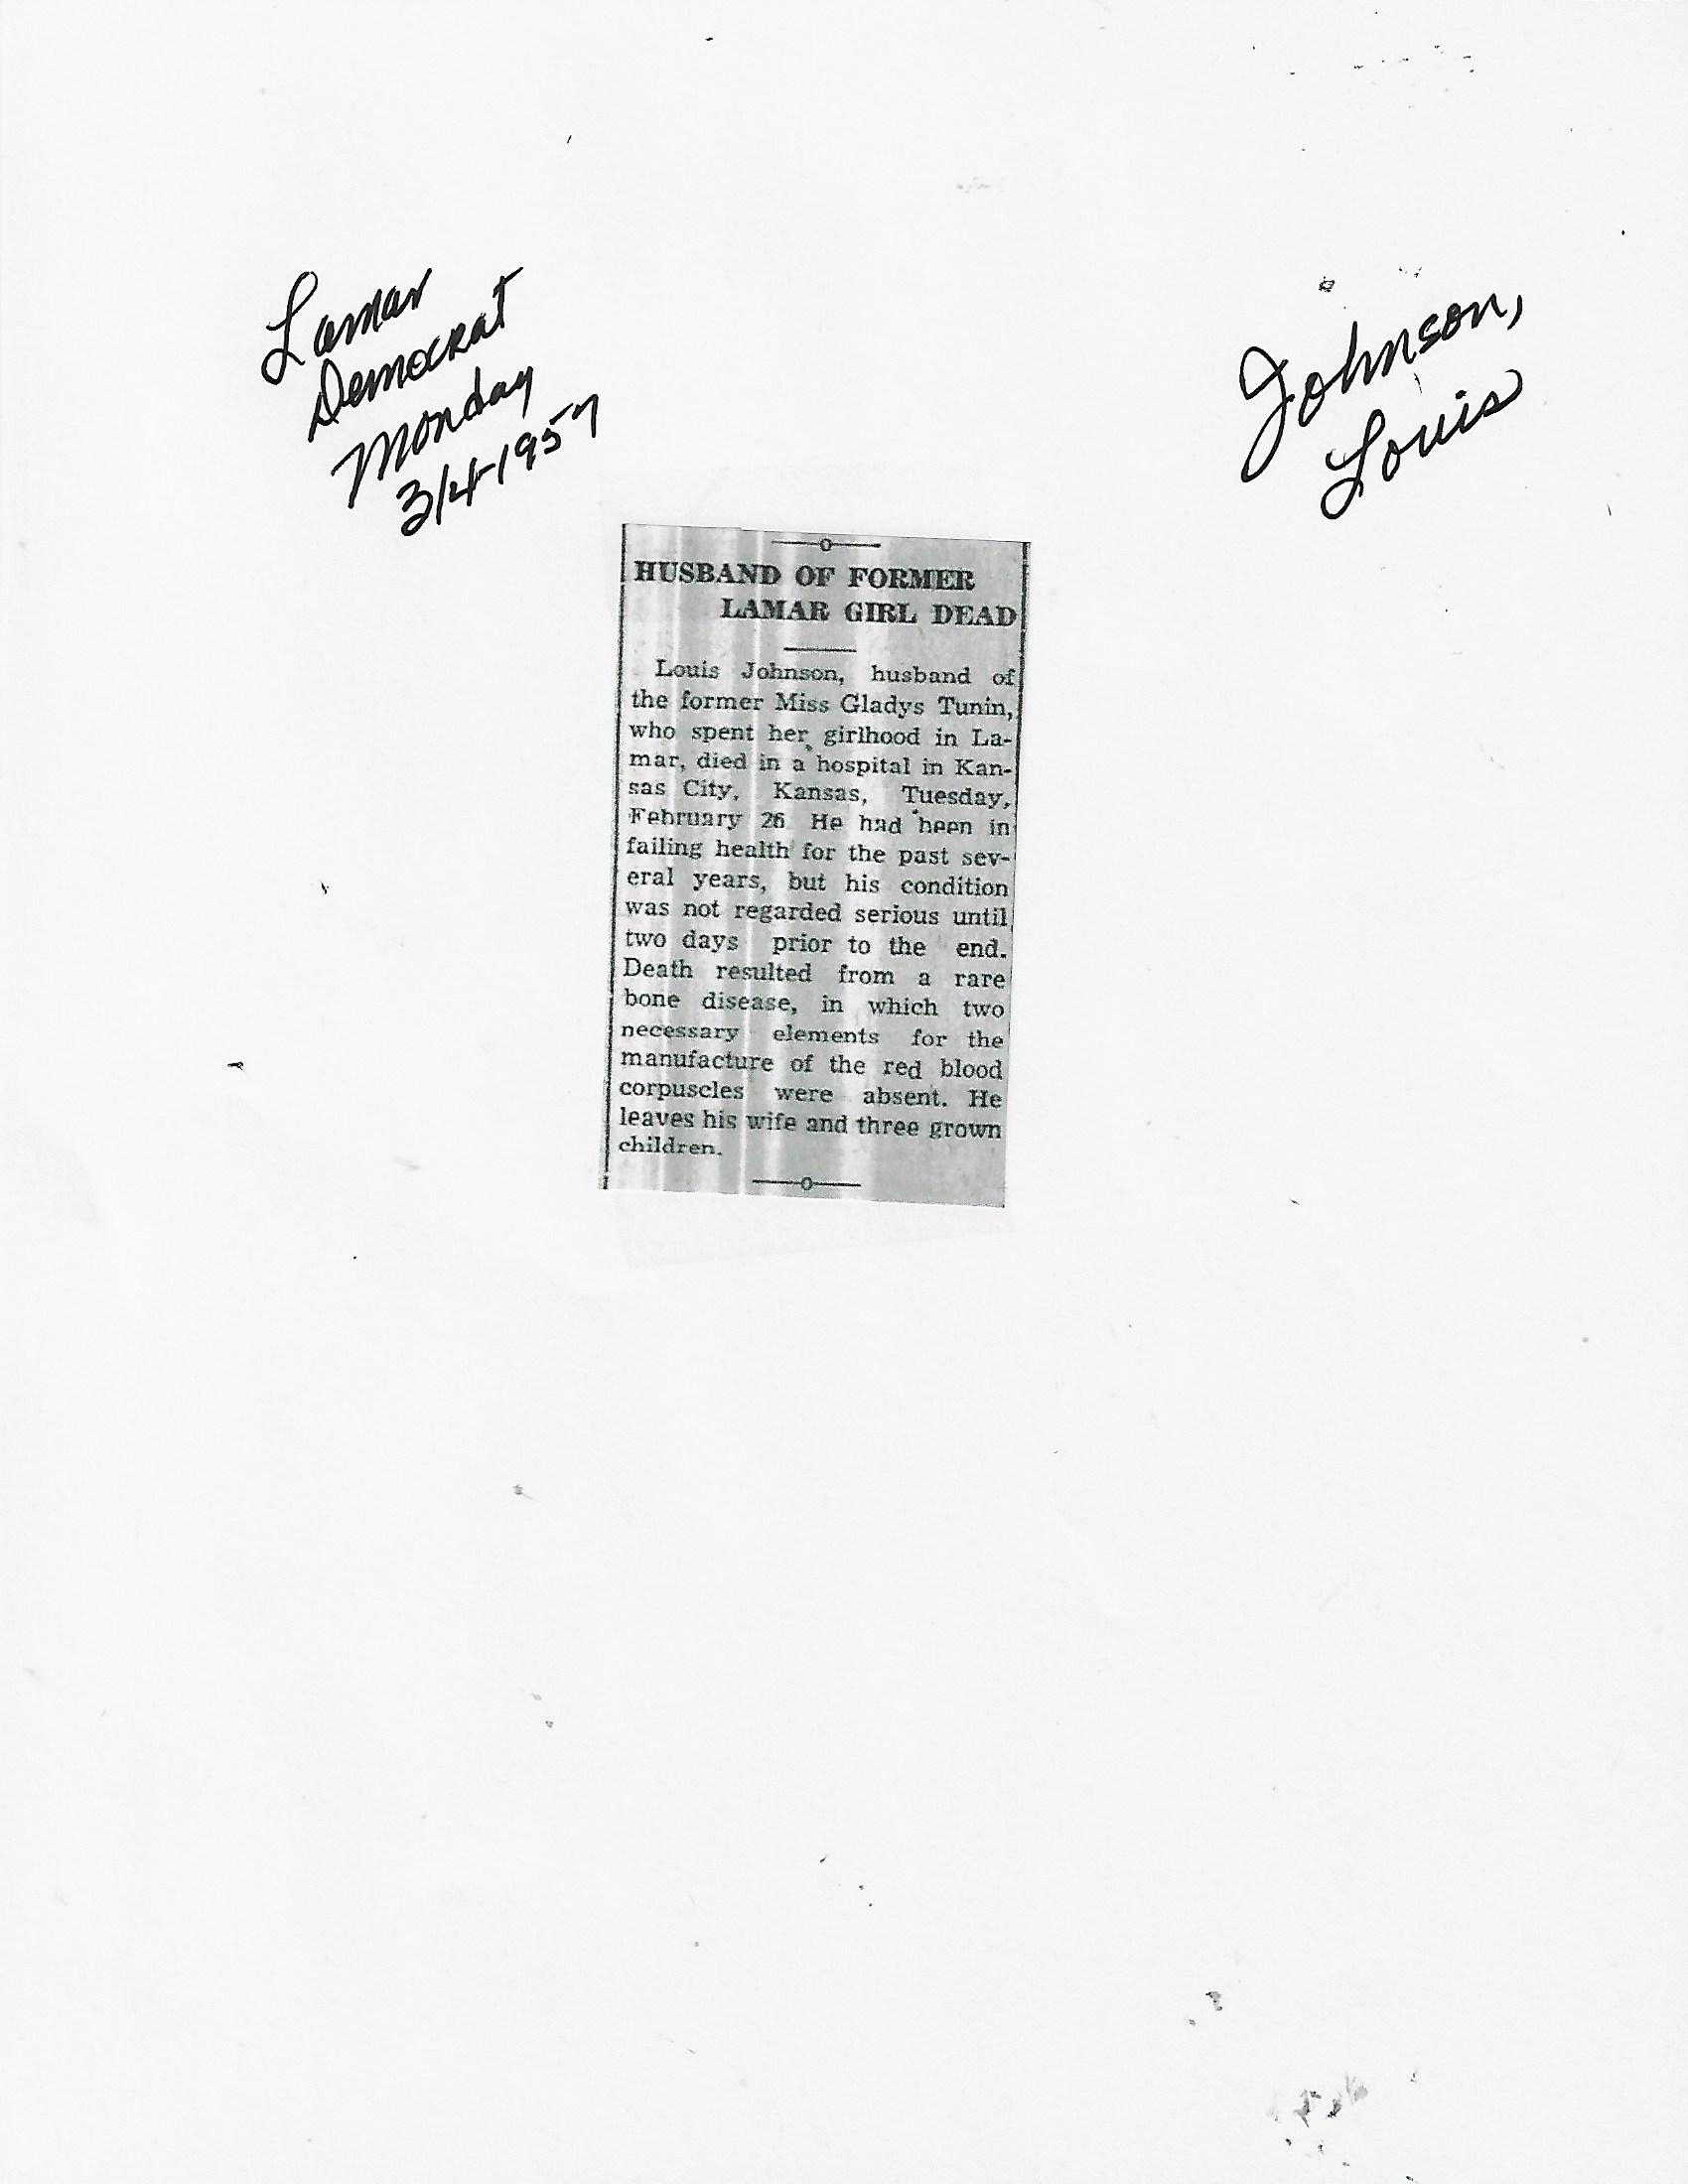 Lamar
Democrat
Monday
3/4-1957
Johnson,
Louis
HUSBAND OF FORMER
LAMAR GIRL DEAD
Louis Johnson, husband of
the former Miss Gladys Tunin,
who spent her girlhood in La-
mar, died in a hospital in Kan-
sas City, Kansas, Tuesday,
February 26 He had been in
failing health for the past sev-
eral years, but his condition
was not regarded serious until
two days prior to the end.
Death resulted from a rare
bone disease, in which two
necessary elements for the
manufacture of the red blood
corpuscles were absent. He
leaves his wife and three grown
children.